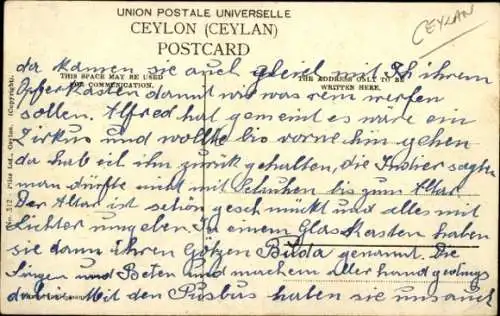 UNION POSTALE UNIVERSELLE
CEYLON (CEYLAN)
POSTCARD
CEYLAN
THIS SPACE MAY BE USED
FOR COMMUNICATION.
THE ADDRESS ONLY TO BE
WRITTEN HERE.
Plâté Ltd., Ceylon. (Copyright).
da kamen sie auch gleich mit ihrem
Opferkasten damit wir was rein werfen
sollen. Alfred hat gemeint es wäre ein
Zirkus und wollte bis vorne hin gehen
da hab ich ihn zurük gehalten, die Indier sagten
man dürfte nicht mit Schuhen bis zum Altar.
Der Altar ist schön geschmückt und alles mit
Lichter umgeben. In einem Glaskasten haben
sie dann ihren Götzen Buda genannt. Die
Singen und Beten und machen aller hand
dabei. Mit den Pusbus haben sie uns auch